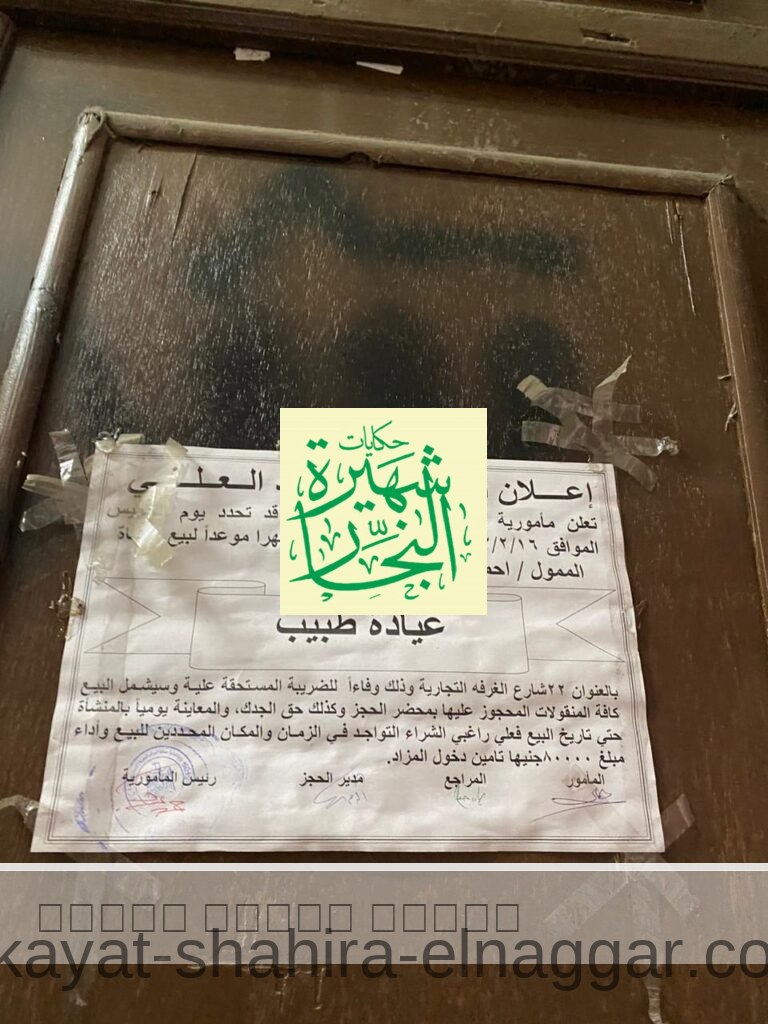 إعـــلان
الـعـلـنـــي
تعلن مأمورية
قد تحدد يوم
الموافق
٢/١٦/
موعداً لبيع
الممول /
حكايات
شهيرة
النجار
عيادة طبيب
بالعنوان ٢٢شارع الغرفه التجارية وذلك وفاءاً للضريبة المستحقة علية وسيشمل البيع
كافة المنقولات المحجوز عليها بمحضر الحجز وكذلك حق الجدك، والمعاينة يومياً بالمنشأة
حتي تاريخ البيع فعلي راغبي الشراء التواجد في الزمان والمكان المحددين للبيع وأداء
مبلغ ٨٠٠٠٠جنيها تامين دخول المزاد.
المأمور المراجع مدير الحجز رئيس المأمورية
kayat-shahira-elnaggar.co